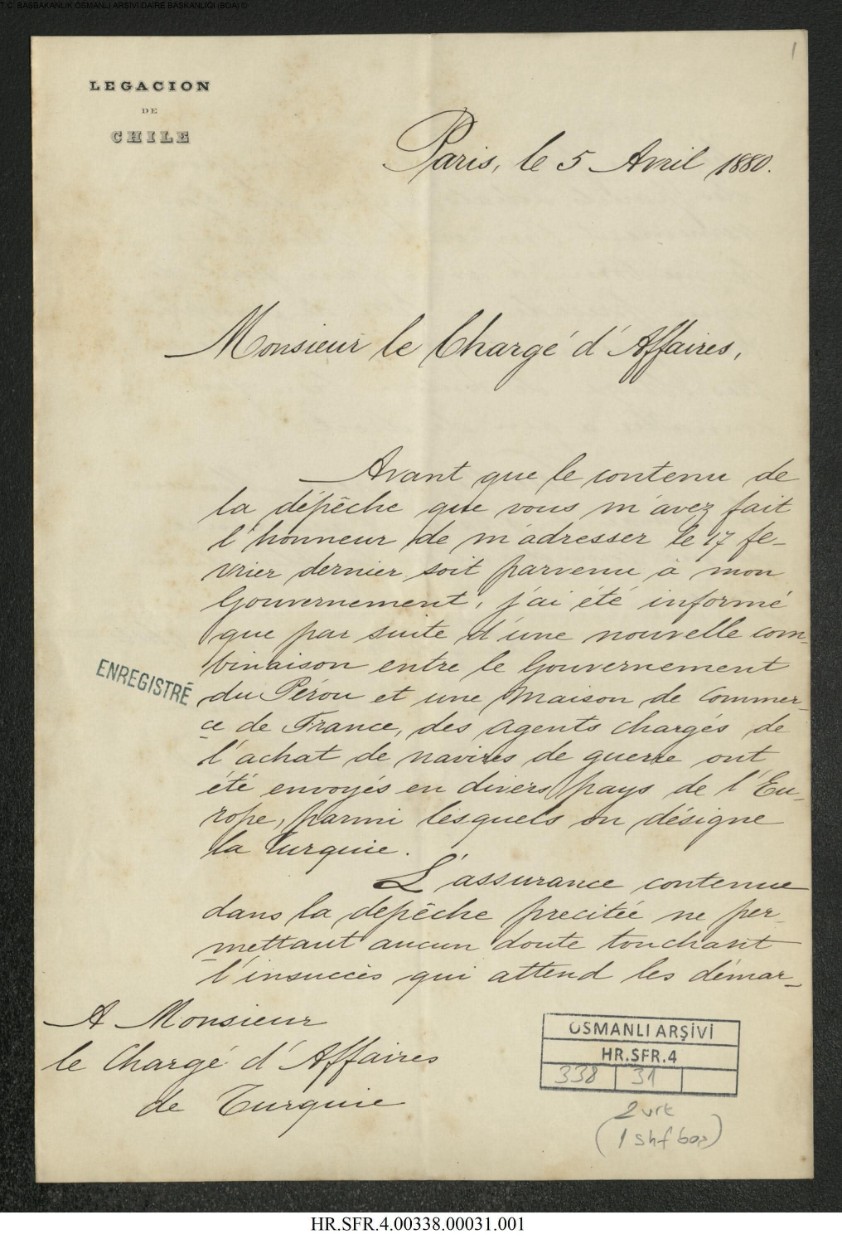 T.C. BAŞBAKANLIK OSMANLI ARŞİVİ DAİRE BAŞKANLIĞI (BOA) ©
1
LEGACION
DE
CHILE
Paris, le 5 Avril 1880.
Monsieur le Chargé d'Affaires,
Avant que le contenu de
la dépêche que vous m'avez fait
l'honneur de m'adresser le 17 fe-
vrier dernier soit parvenu à mon
Gouvernement, j'ai été informé
que par suite d'une nouvelle com-
binaison entre le Gouvernement
ENREGISTRÉ
du Pérou et une Maison de Commer-
ce de France, des agents chargés de
l'achat de navires de guerre ont
été envoyés en divers pays de l'Eu-
rope, parmi lesquels on désigne
la Turquie.
L'assurance contenue
dans la depêche precitée ne per-
mettant aucun doute touchant
l'insuccès qui attend les démar-
A Monsieur
le Chargé d'Affaires
de Turquie
OSMANLI ARŞİVİ
HR.SFR.4
338 31
2 vrk
(1 shf boş)
HR.SFR.4.00338.00031.001